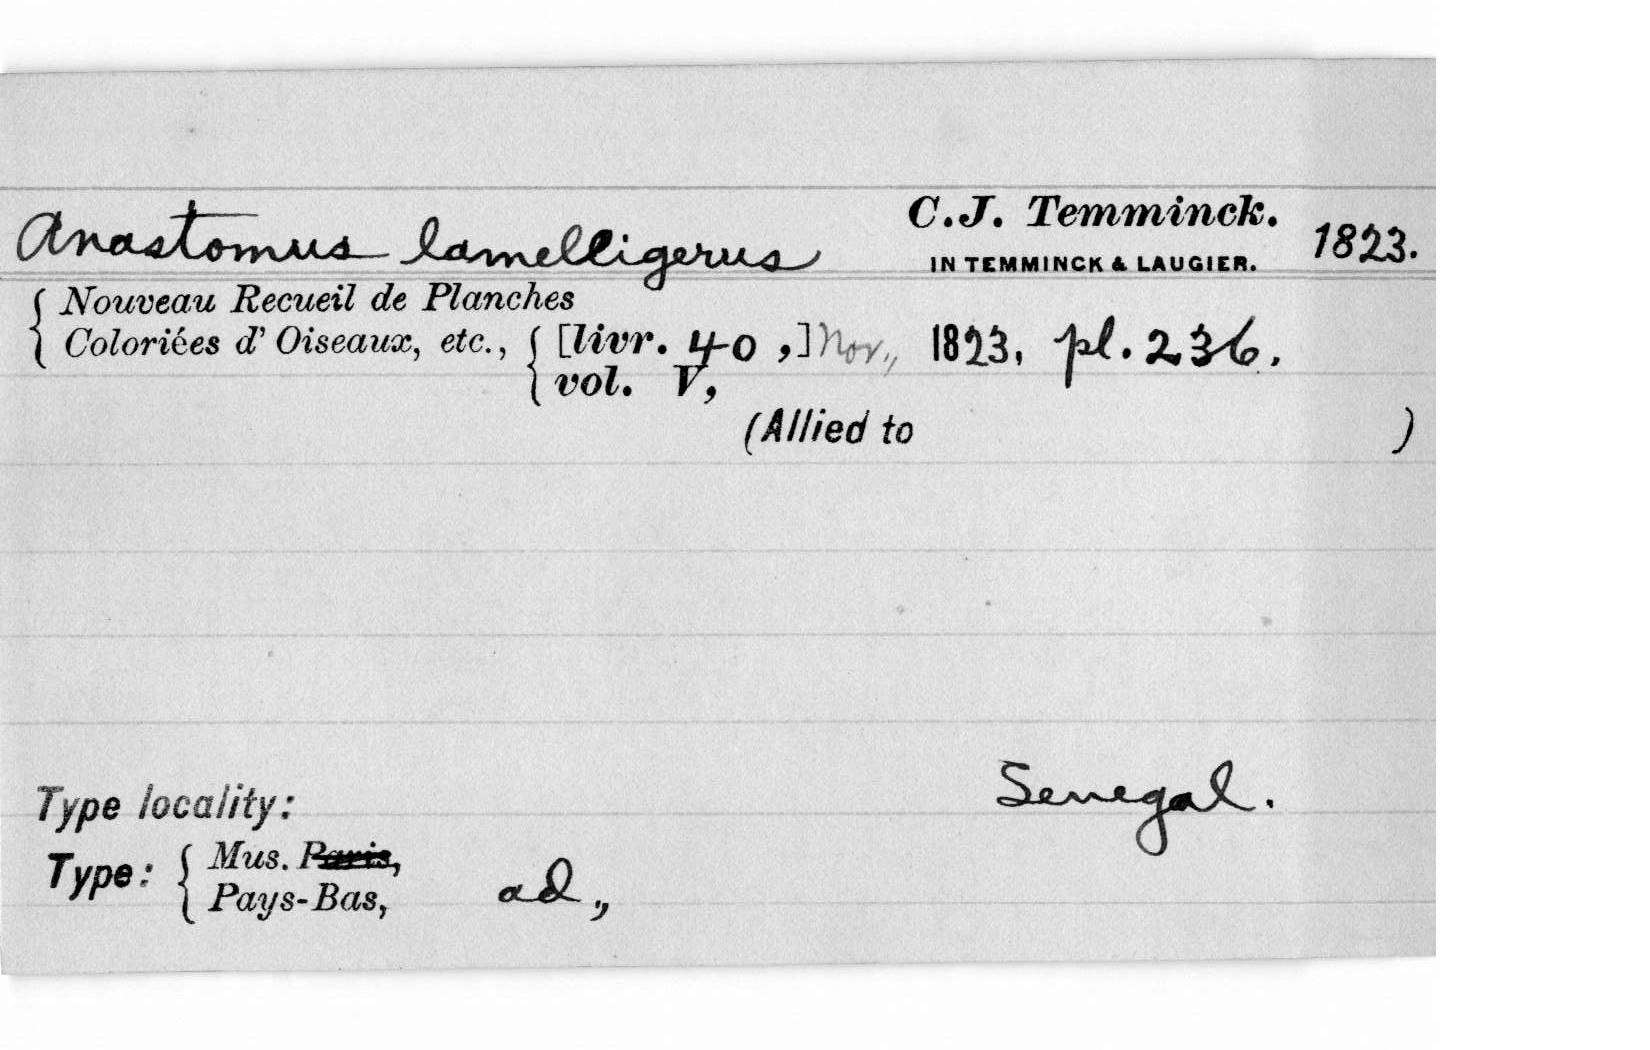 Anastomus lamelligerus C.J. Temminck. 1823.
IN TEMMINCK & LAUGIER.
Nouveau Recueil de Planches
Coloriées d' Oiseaux, etc., [livr. 40 ,] Nov., 1823, pl. 236.
vol. V,
(Allied to )
Type locality: Senegal.
Type: Mus. Paris,
Pays-Bas, ad.,